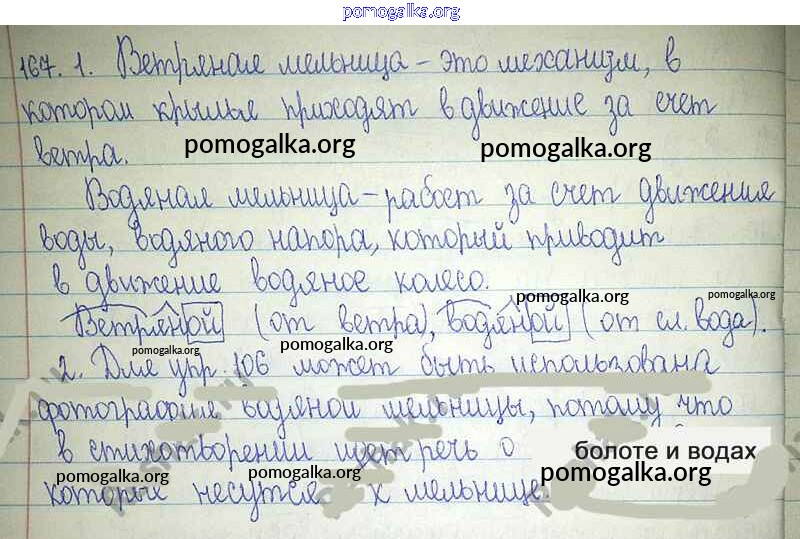 pomogalka.org
167. 1. Ветряная мельница – это механизм, в
котором крылья приходят в движение за счет
pomogalka.org pomogalka.org
ветра.
Водяная мельница – рабоет за счет движения
воды, водяного напора, который приводит
в движение водяное колесо.
pomogalka.org pomogalka.org
Ветряной (от ветра), водяной (от сл. вода).
pomogalka.org pomogalka.org pomogalka.org
2. Для упр. 106 может быть использована
фотография водяной мельницы, потому что
в стихотворении идет речь о болоте и водах
pomogalka.org pomogalka.org pomogalka.org
которые несутся к мельнице.